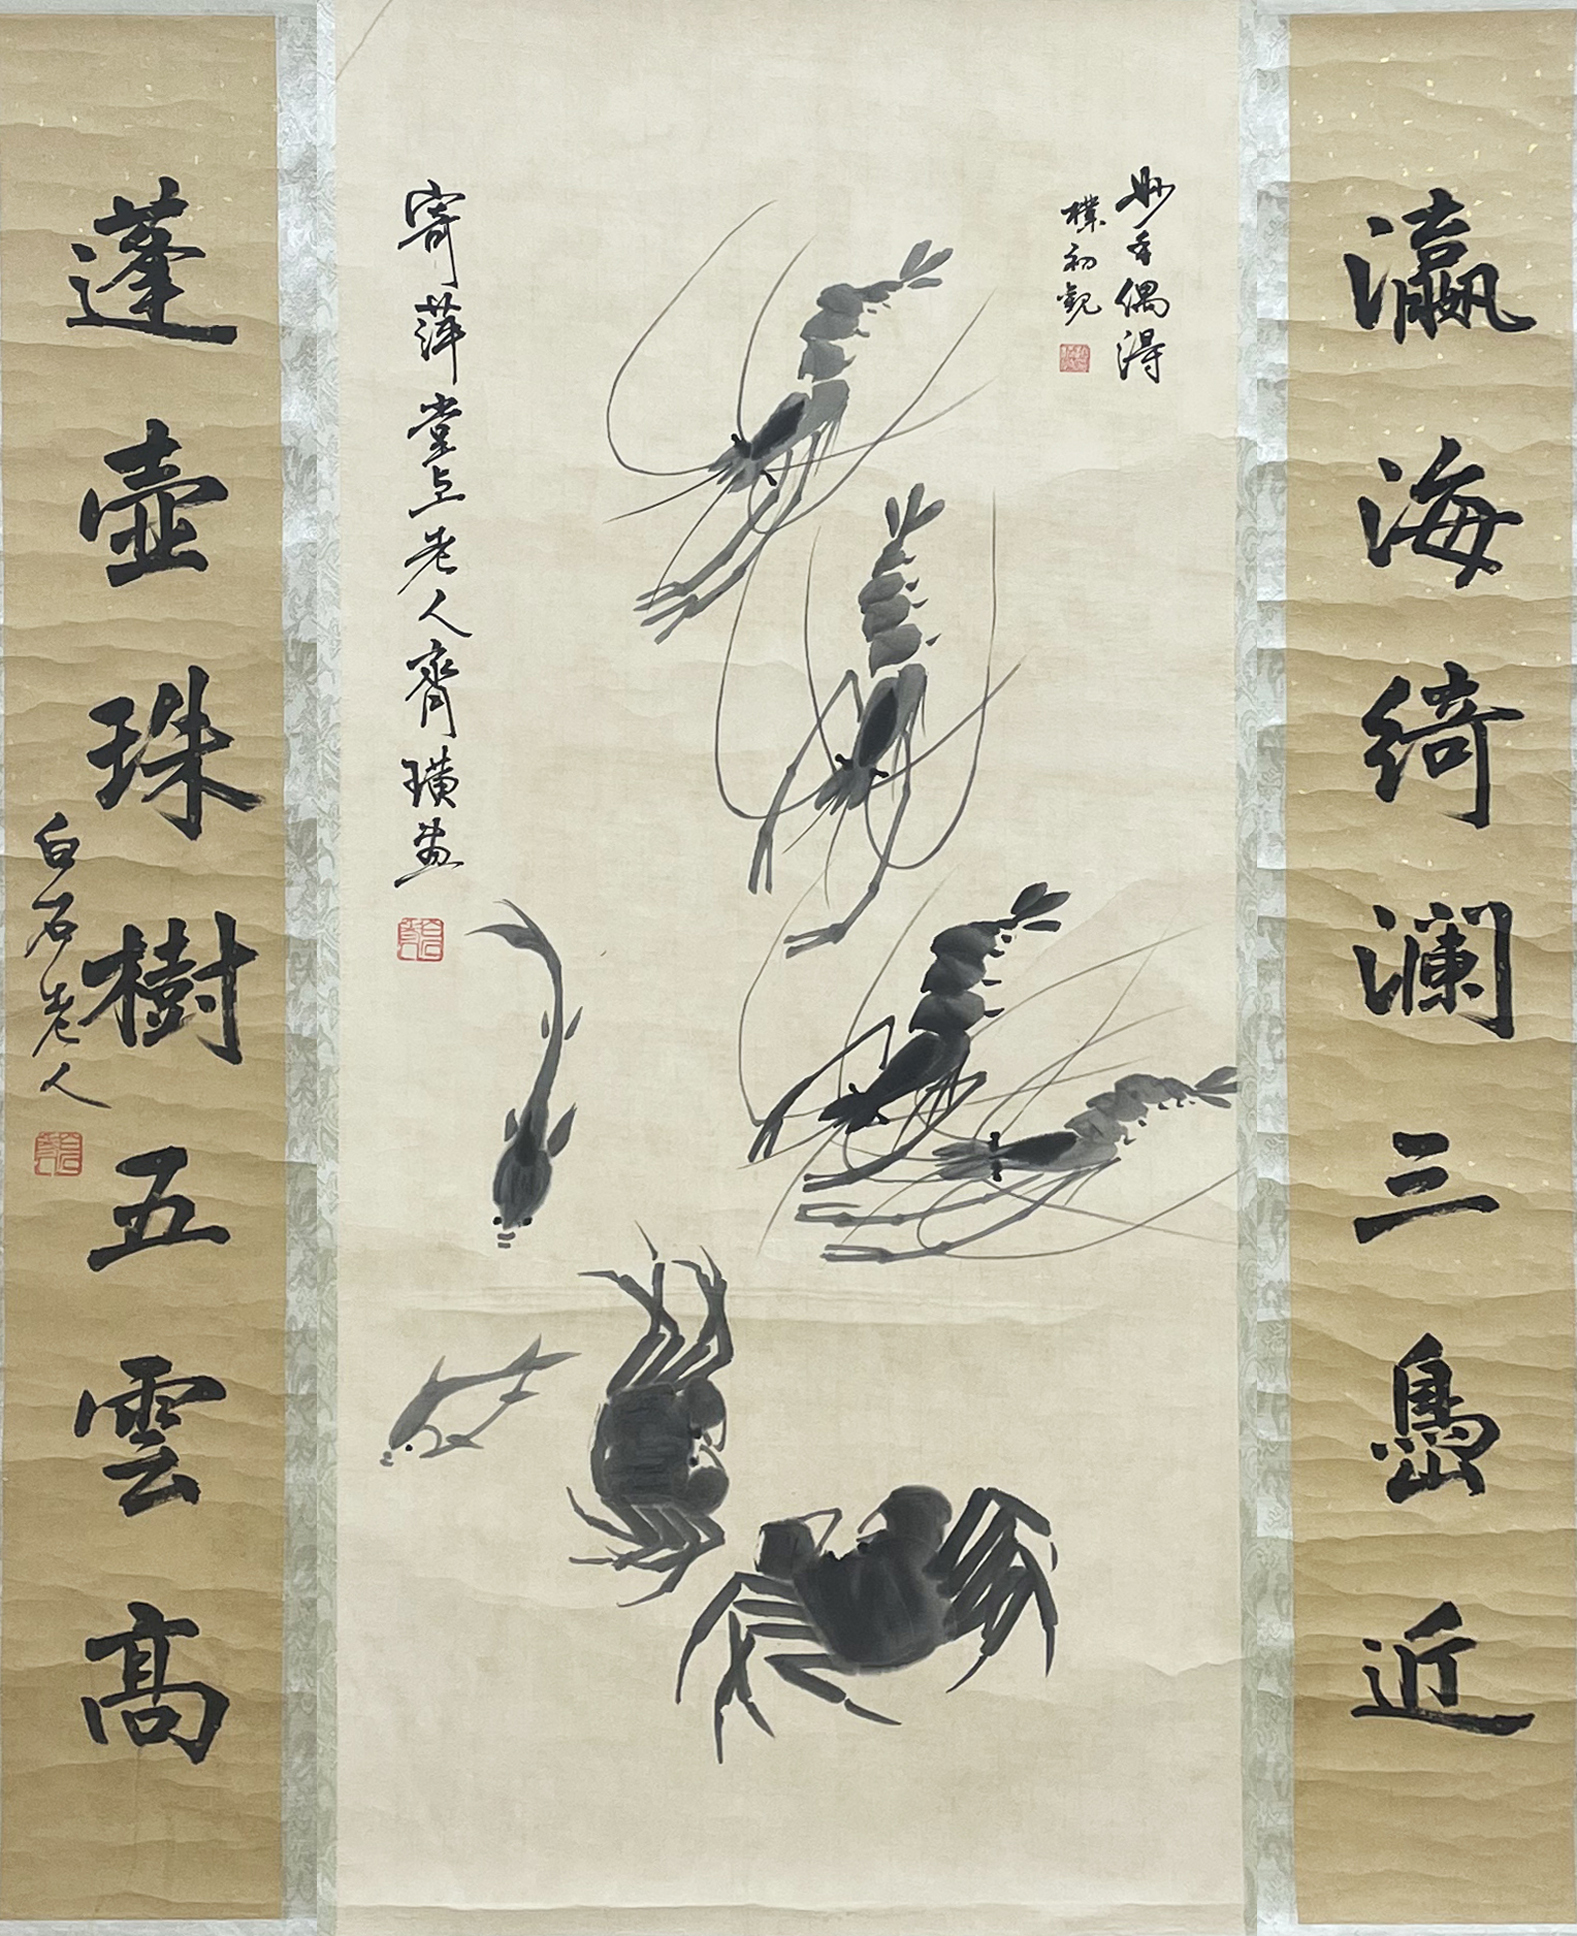 瀛海綺瀾三島近
妙手偶得
樸初觀
寄萍堂上老人齊璜畫
蓬壺珠樹五雲高
白石老人